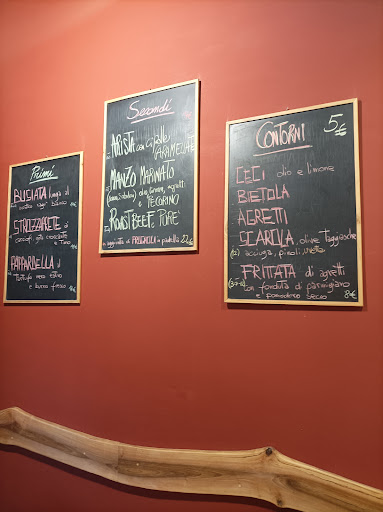 Primi
BUSIATA
nostro ragù bianco
STROZZAPRETE ai
carciofi, gita croccante
e Timo
PAPPARDELLA al
tartufo nero estivo
e burro fuso
Secondi
ARISTA con cipolle
CARAMELLATE
MANZO MARINATO
e PECORINO
ROAST BEEF e PURE'
e aggiunta di FRIGGIONE in padella
CONTORNI 5€
CECI olio e limone
BIETOLA
AGRETTI
SCAROLA, olive Taggiasche
acciuga, pinoli, uvetta
FRITTATA di agretti
(3-7-8) con fonduta di parmigiano
e pomodoro secco 8€